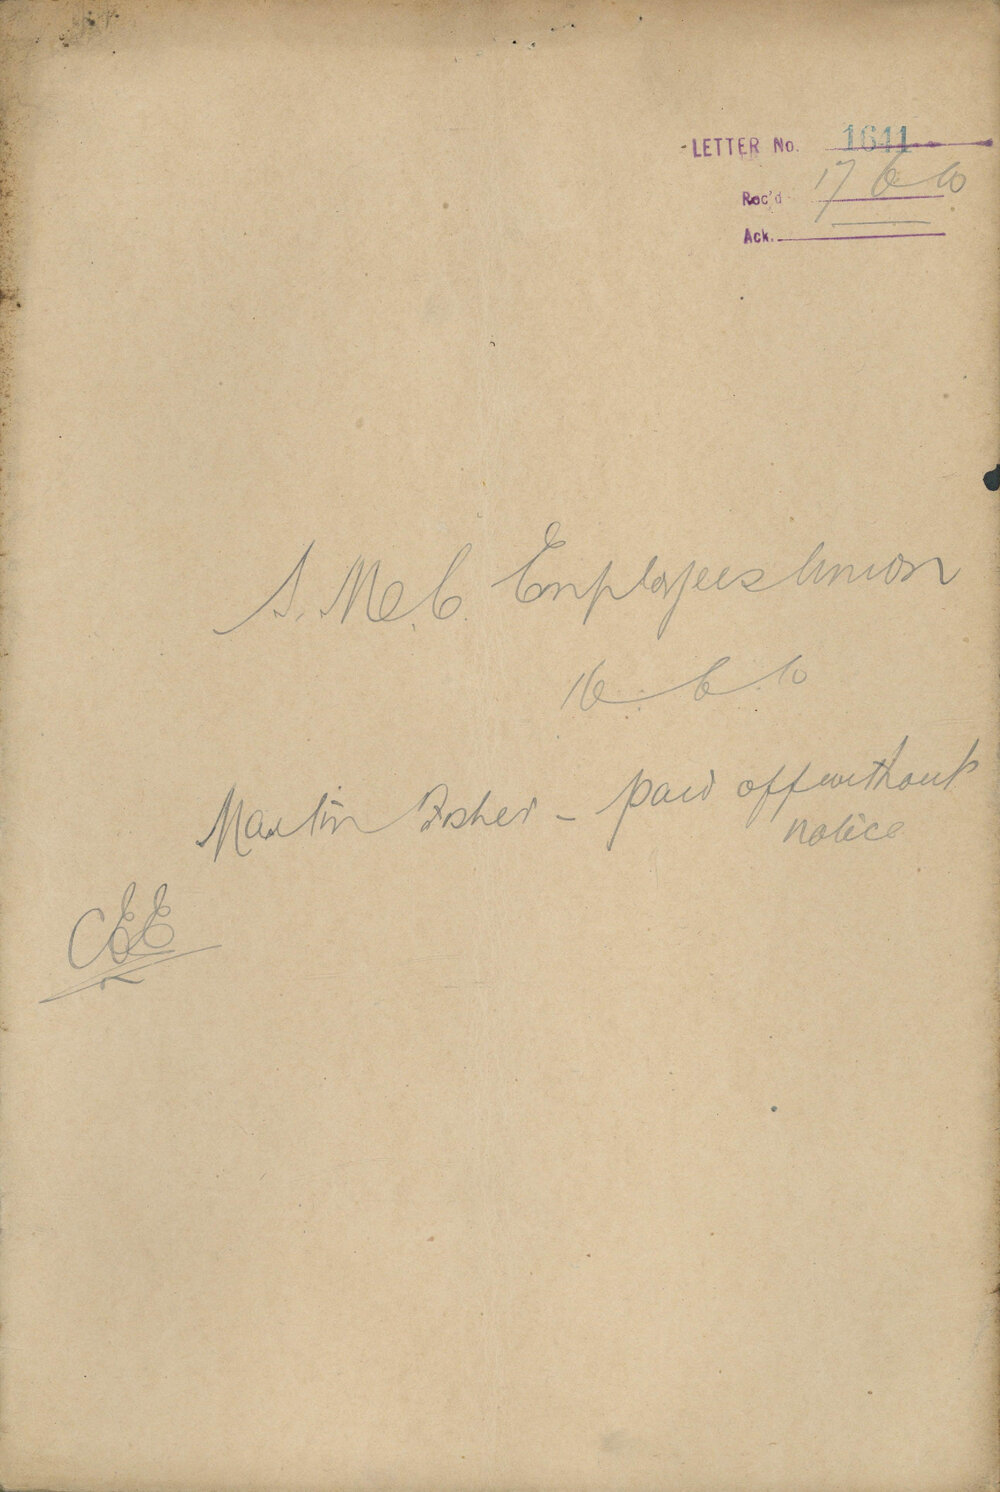 LETTER No. 1641
Rec'd 17 6 10
Ack.
S. M. C. Employees Union
16. 6. 10
Martin Fisher - paid off without
notice
CEE